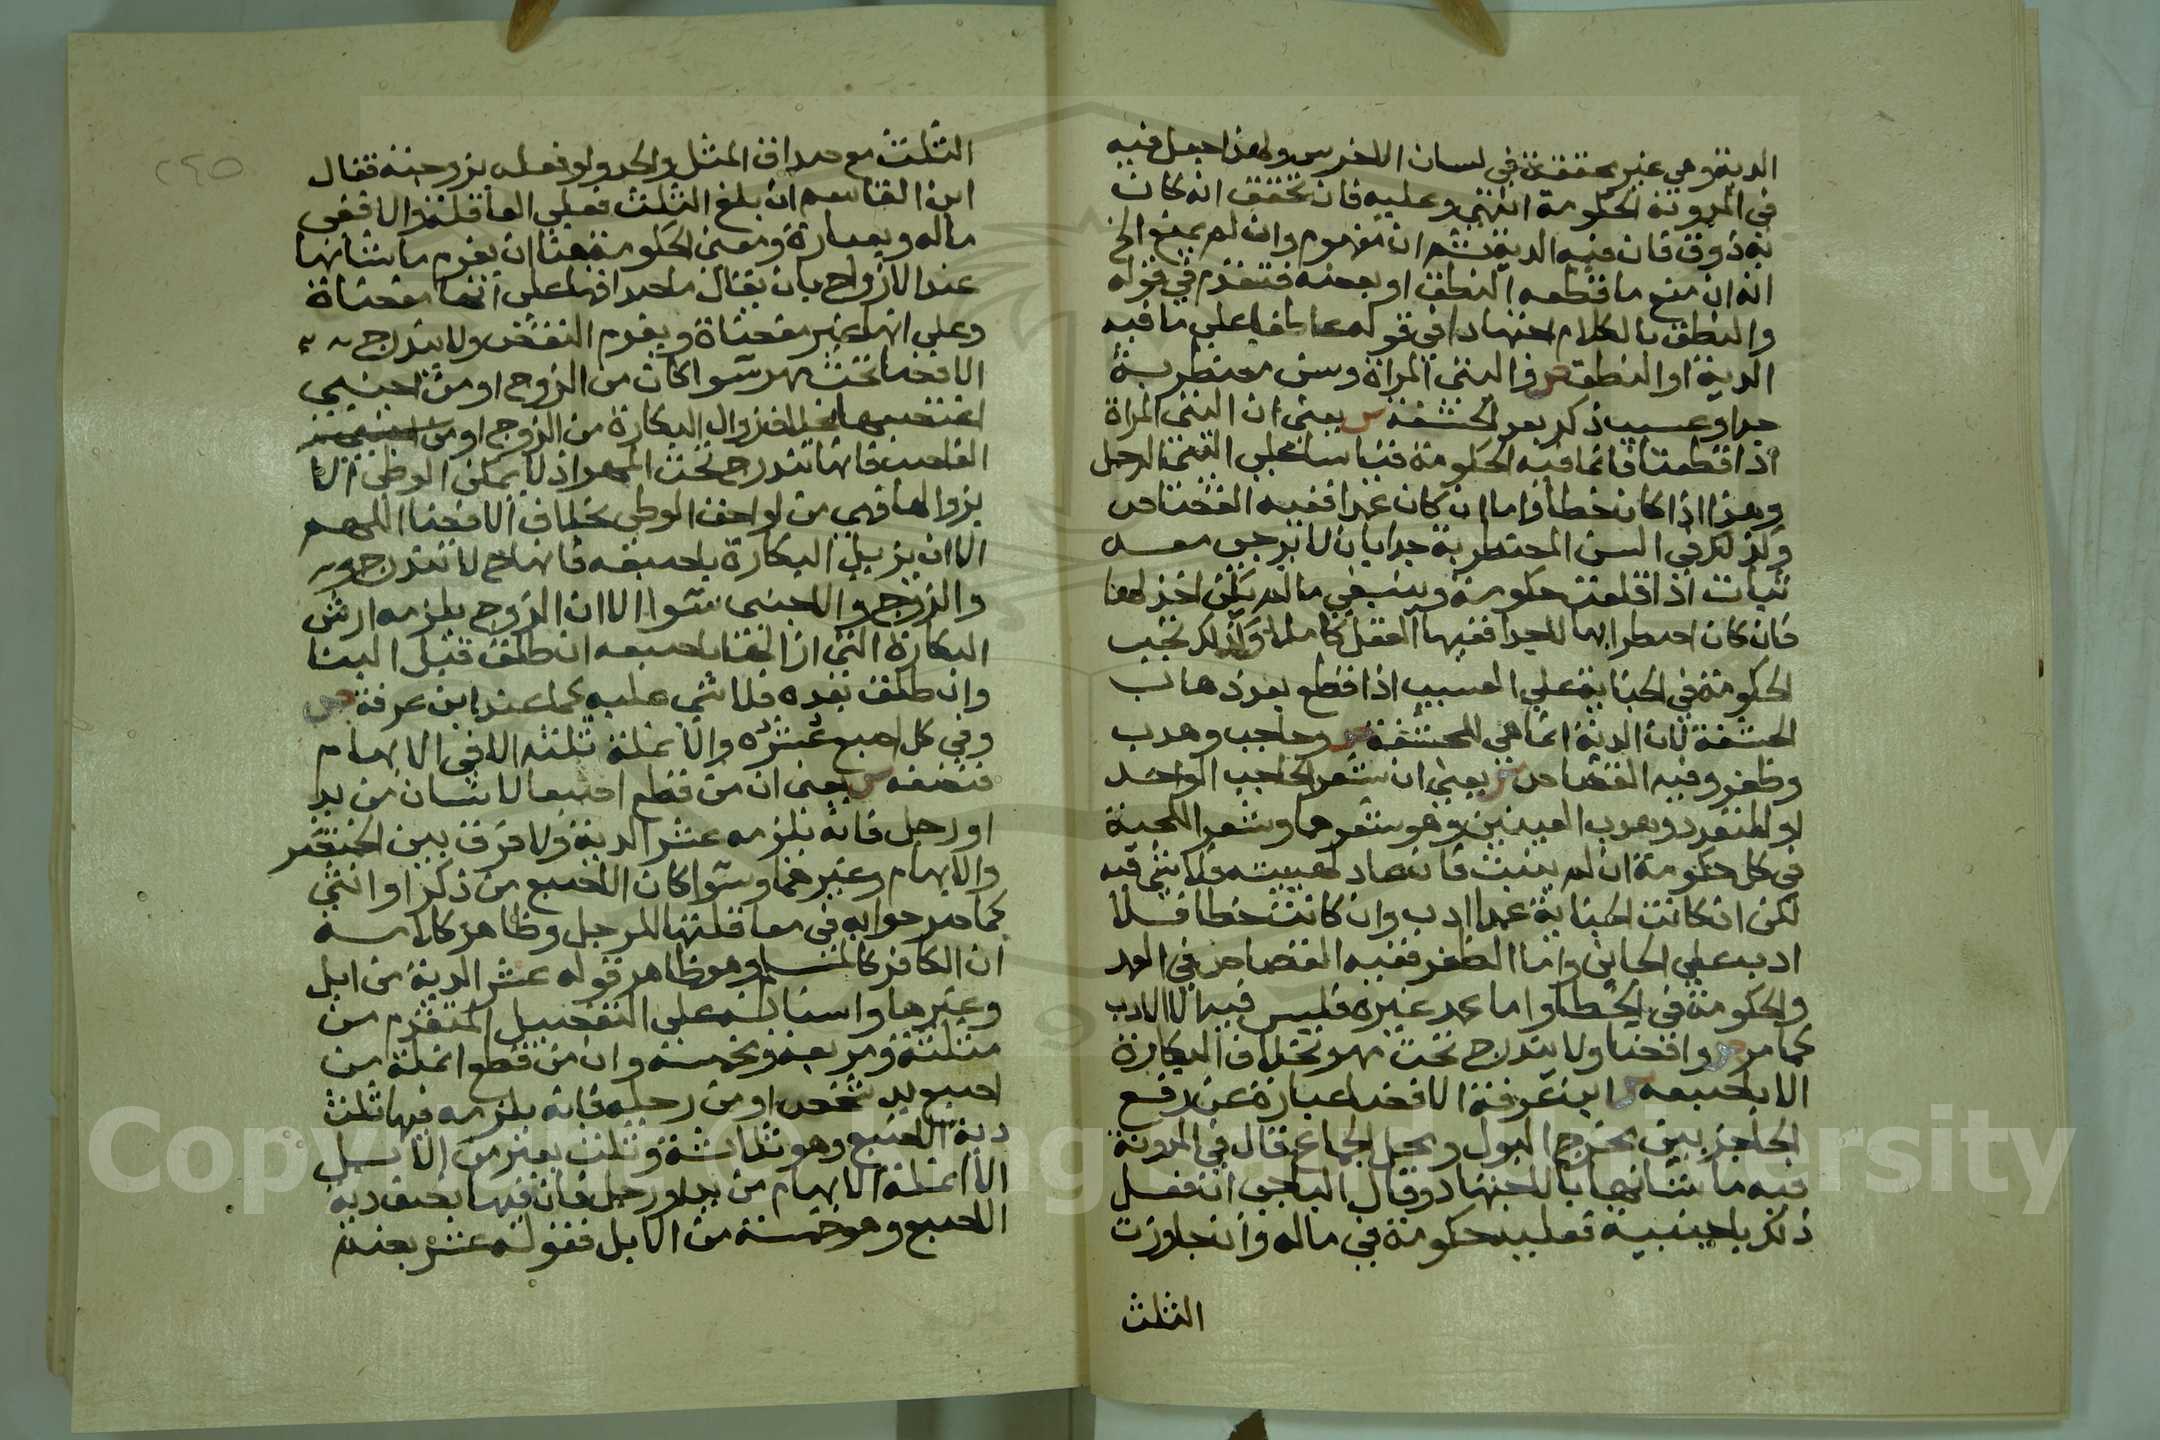 الدية وهي غير محققة في لسان الاخرس ولهذا جعل فيه
في المدونة الحكومة انتهى وعليه فان تحقق انه كان
به ذوق فان فيه الدية ثم ان مفهوم وان لم يمنع الخ
انه ان منع ما قطعه النطق او بعضه فتقدم في قوله
والنطق بالكلام اجتهادا في قوله عاطفا على ما فيه
الدية او النطق ص واليتي المراة وسن مضطربة
جدا وعسيب ذكر بعد الحشفة ش يعني ان اليتي المراة
اذا قطعتا فانما فيه الحكومة قياسا على اليتي الرجل
وهذا اذا كان خطا واما ان كان عمدا ففيه القصاص
وكذلك في السن المضطربة جدا بان لا يرجى معه
ثبات اذا قلعت حكومة وينبغي ما لم يكن اخذ لها
فان كان اضطرابها لا جدا ففيها العقل كاملا وكذلك تجب
الحكومة في الجناية على العسيب اذا قطع بعد ذهاب
الحشفة لان الدية انما هي للحشفة ص وحاجب وهدب
وظفر وفيه القصاص ش يعني ان شعر الحاجب الواحد
او المنفرد وهدب العينين وهو شعرهما وشعر اللحية
في كل حكومة ان لم ينبت فان عاد لهيئته فلا شي فيه
لكن ان كانت الجناية عمدا ادب وان كانت خطا فلا
ادب على الجاني واما الظفر ففيه القصاص في العمد
والحكومة في الخطا واما عمد غيره فليس فيه الا الادب
كما مر ص وافضا ولا يندرج تحت مهر بخلاف البكارة
الا باصبعه ش ابن عرفة الافضا عبارة عن رفع
الحاجز بين مخرج البول ومحل الجماع قال في المدونة
فيه ما شانها بالاجتهاد وقال الباجي ان فعل
ذلك باجنبية فعليه حكومة في ماله وان جاوزت
الثلث
٢٤٥
الثلث مع صداق المثل والحد ولو فعله بزوجته فقال
ابن القاسم ان بلغ الثلث فعلى العاقلة والا ففي
ماله وبعبارة ومعنى الحكومة هنا ان يغرم ما شانها
عند الازواج بان يقال ما صداقها على انها مفضاة
وعلى انها غير مفضاة ويغرم النقص ولا يندرج
الافضا تحت مهر سوا كان من الزوج او من اجنبي
اغتصبها بخلاف زوال البكارة من الزوج او من
الغاصب فانها تندرج تحت المهر اذ لا يمكن الوطي الا
بزوالها فهي من لواحق الوطي بخلاف الافضا اللهم
الا ان يزيل البكارة باصبعه فانها ح لا تندرج
والزوج والاجنبي سوا الا ان الزوج يلزمه ارش
البكارة التي ازالها باصبعه ان طلق قبل البنا
وان طلق بعده فلا شي عليه كما عند ابن عرفة ص
وفي كل اصبع عشره والانملة ثلثه الا في الابهام
فنصفه ش يعني ان من قطع اصبعا لانسان من يد
او رجل فانه يلزمه عشر الدية ولا فرق بين الخنصر
والابهام وغيرهما وسوا كان الاصبع من ذكر او انثى
كما في معاقلتها للرجل وظاهر كلامه
ان الكافر كالمسلم وهو ظاهر قوله عشر الدية من ابل
وغيرها واسنانه على التفصيل المتقدم من
مثلثة ومربعة ومخمسة وان من قطع انملة من
اصبع يد شخص او من رجله فانه يلزمه فيها ثلث
دية الاصبع وهو ثلاثة وثلث بعير من الابل
الا انملة الابهام من يد او رجل فان فيها نصف دية
الاصبع وهو خمسة من الابل فقوله عشر بعدم